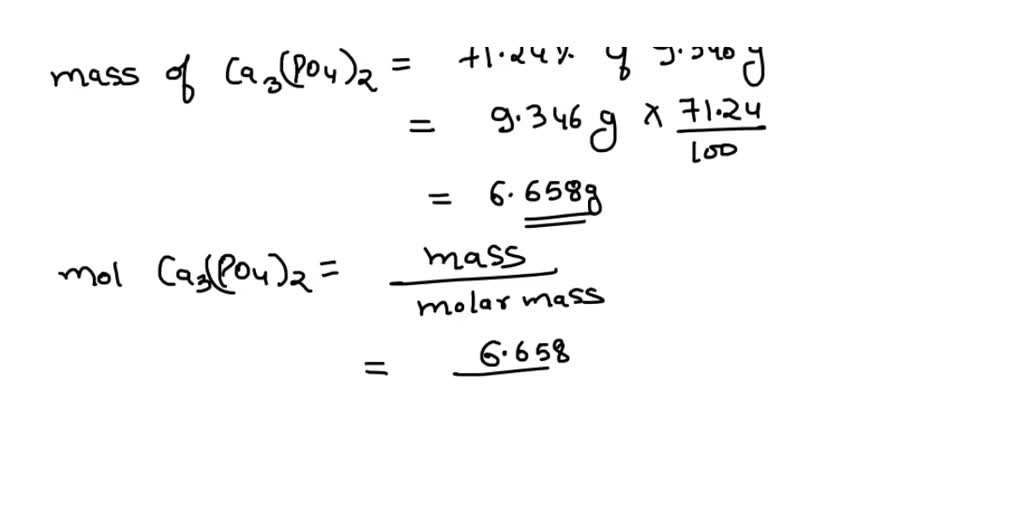 mass of Ca3(PO4)2 = 71.24% of 9.346g
= 9.346 g x 71.24
100
= 6.658g
mol Ca3(PO4)2 = mass
molar mass
= 6.658